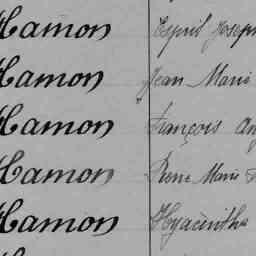 Hamon Esprit Joseph
Hamon Jean Marie
Hamon François Ang
Hamon Rene Marie
Hamon Hyacinthe